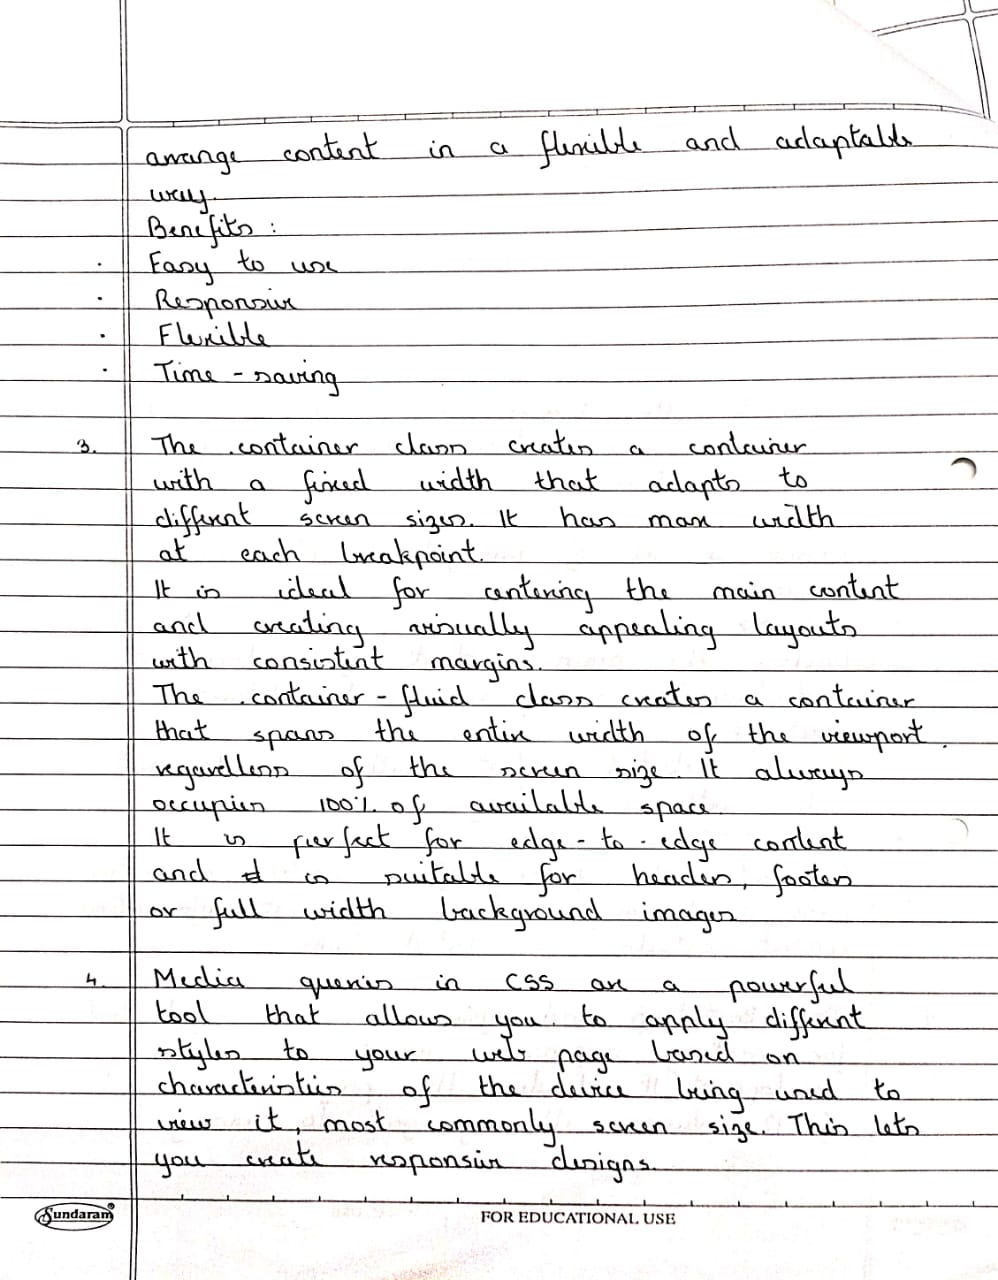 arrange content in a flexible and adaptable
way.
Benefits :
· Easy to use
· Responsive
· Flexible
· Time - saving
3. The .container class creates a container
with a fixed width that adapts to
different screen sizes. It has max width
at each breakpoint.
It is ideal for centering the main content
and creating visually appealing layouts
with consistent margins.
The .container - fluid class creates a container
that spans the entire width of the viewport.
regardless of the screen size. It always
occupies 100% of available space.
It is perfect for edge - to - edge content
and is suitable for headers, footers
or full width background images
4. Media queries in CSS are a powerful
tool that allows you to apply different
styles to your web page based on
characteristics of the device being used to
view it, most commonly screen size. This lets
you create responsive designs.
Sundaram®
FOR EDUCATIONAL USE